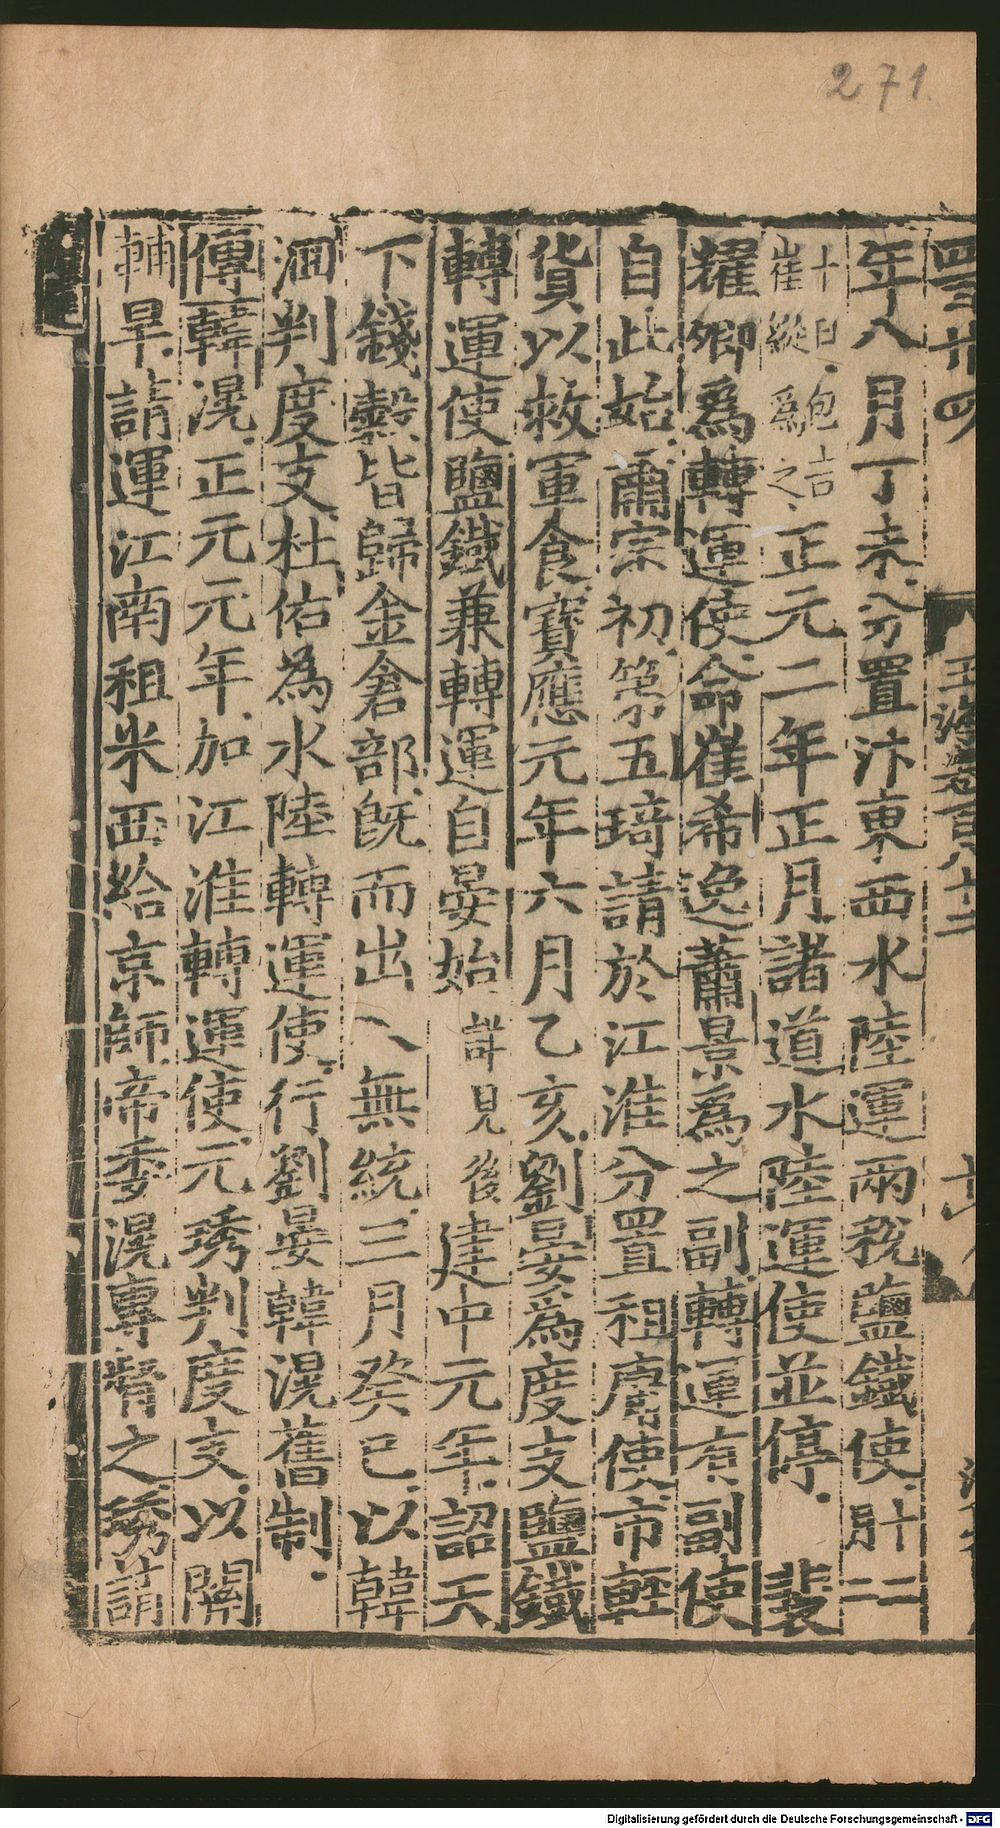 271.
四百廿四
玉海卷百八十二
年八月丁未分置汴東西水陸運兩稅鹽鐵使
月二
十二
十日包吉
崔縱爲之
正元二年正月諸道水陸運使並停 裴
耀卿爲轉運使命崔希逸蕭景爲之副轉運有副使
自此始肅宗初第五琦請於江淮分置租庸使市輕
貨以救軍食寶應元年六月乙亥劉晏爲度支鹽鐵
轉運使鹽鐵兼轉運自晏始
詳見後
建中元年詔天
下錢穀皆歸金倉部既而出入無統三月癸巳以韓
洄判度支杜佑為水陸轉運使行劉晏韓滉舊制
傳韓滉正元元年加江淮轉運使元琇判度支以關
輔旱請運江南租米西給京師帝委滉專督之琇請
Digitalisierung gefördert durch die Deutsche Forschungsgemeinschaft - DFG